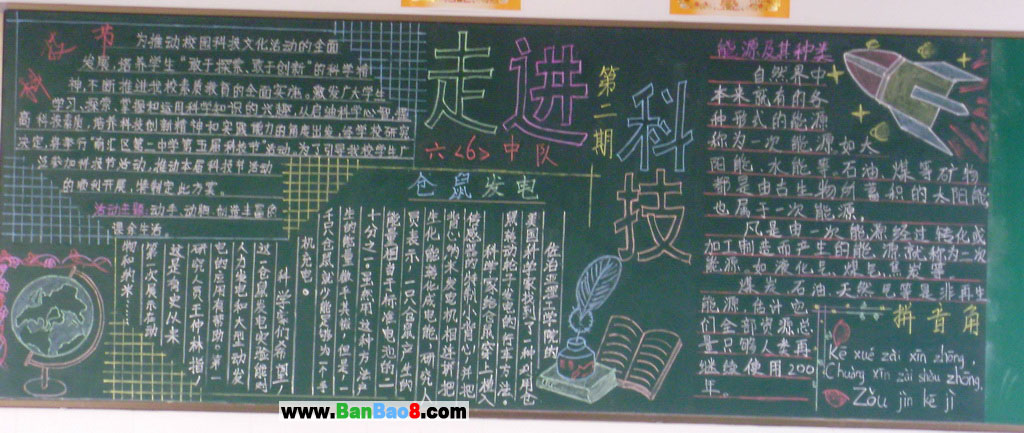 科技节
为推动校园科技文化活动的全面
发展,培养学生"敢于探索、敢于创新"的科学精
神,不断推进我校素质教育的全面实施,激发广大学生
学习、探索、掌握和运用科学知识的兴趣,从启迪科学心智,提
高科学素质,培养科技创新精神和实践能力的角度出发,经学校研究
决定,将举行"南汇区第一中学第五届科技节"活动,为了引导我校学生广
泛参加科技节活动,推动本届科技节活动
的顺利开展,特制定此方案。
活动主题:动手、动脑,创造丰富的
课余生活。
走进
科技
第二期
六<6>中队
仓鼠发电
在治亚理工学院的
美国科学家找到了一种利用仓
鼠滚动轮子发电的所有方法。
科学家给仓鼠穿上植入
传感器的特制小背心,并把
背心响来发电机相连就把
生化能转化成电能。研究人
员表示,一只仓鼠产生的
能量相当于标准电池的二
十分之一。虽然用这种方法产
生的能量微不足道,但是一
千只仓鼠就可能足够为一个手
机充电。
科学家们希望了
这一仓鼠发电实验能对
人力发电和大型运动发
电的运有帮助。第一
研究人员王仲林指,
这是有史以来
第一次展示运动
物和纳米……
能源及其种类
自然界中
本来就有的各
种形式的能源
称为一次能源如太
阳能、水能等。石油、煤等矿物
都是由古生物所蓄积的太阳能
也属于一次能源。
凡是由一次能源经过转化或
加工制造而产生的能源就称为二次
能源。如液化气、煤气、蒸发等
煤炭、石油、天然气等是非再生
能源,估计它
们全部资源总
量只够人类再
继续使用200
年。
拼音角
Kē xué zài xīn zhōng,
Chuàng xīn zài shǒu zhōng,
Zǒu jìn kē jì
www.BanBao8.com